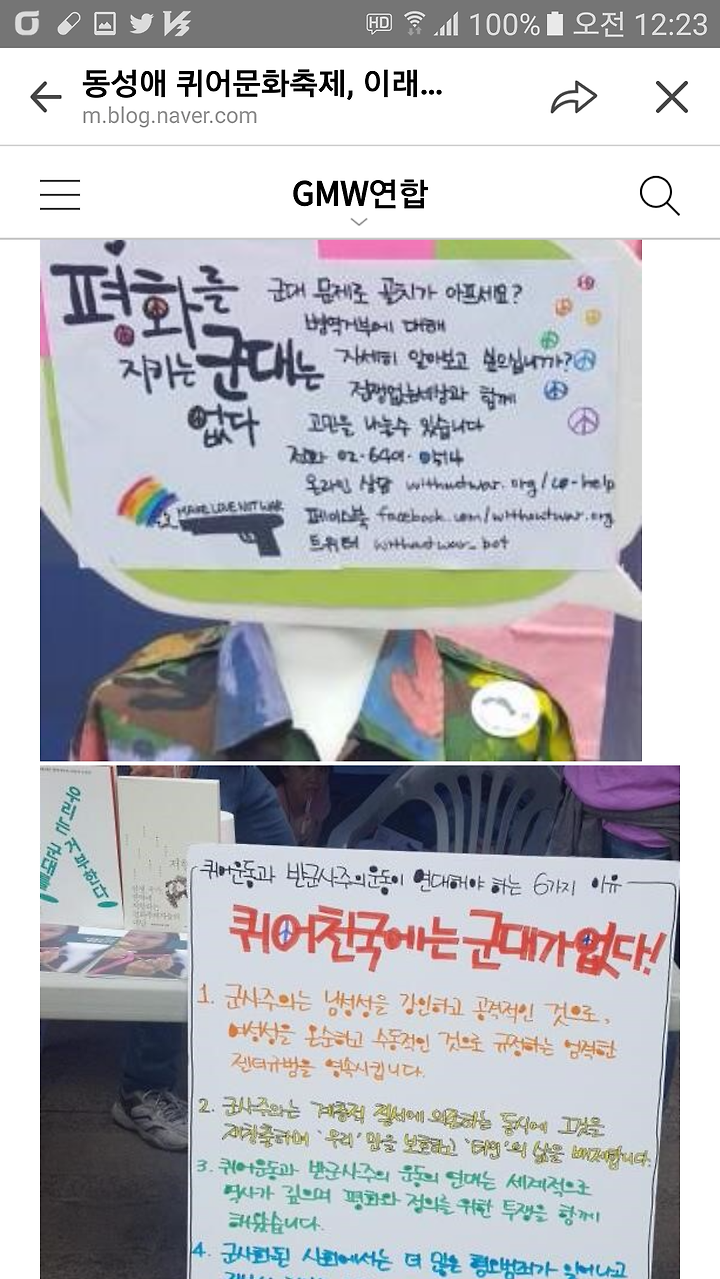 HD 100% 오전 12:23
동성애 퀴어문화축제, 이래...
m.blog.naver.com
GMW연합
평화를
지키는 군대는
없다
MAKE LOVE NOT WAR
군대 문제로 골치가 아프세요?
병역거부에 대해
자세히 알아보고 싶으십니까?
전쟁없는세상과 함께
고민을 나눌수 있습니다
전화 02-6401-0514
온라인 상담 withoutwar.org/co-help
페이스북 facebook.com/withoutwar.org
트위터 withoutwar_bot
우리는 군대를 거부한다
퀴어운동과 반군사주의운동이 연대해야 하는 6가지 이유
퀴어천국에는 군대가 없다!
1. 군사주의는 남성성을 강인하고 공격적인 것으로,
여성성을 온순하고 수동적인 것으로 규정하는 엄격한
젠더규범을 영속시킵니다.
2. 군사주의는 계층적 질서에 의존하는 동시에 그것을
재창출하며 '우리'만을 보호하고 '타인'의 삶을 배제합니다.
3. 퀴어운동과 반군사주의 운동의 연대는 세계적으로
역사가 깊으며 평화와 정의를 위한 투쟁을 함께
해왔습니다.
4. 군사화된 사회에서는 더 많은 혐오범죄가 일어나고